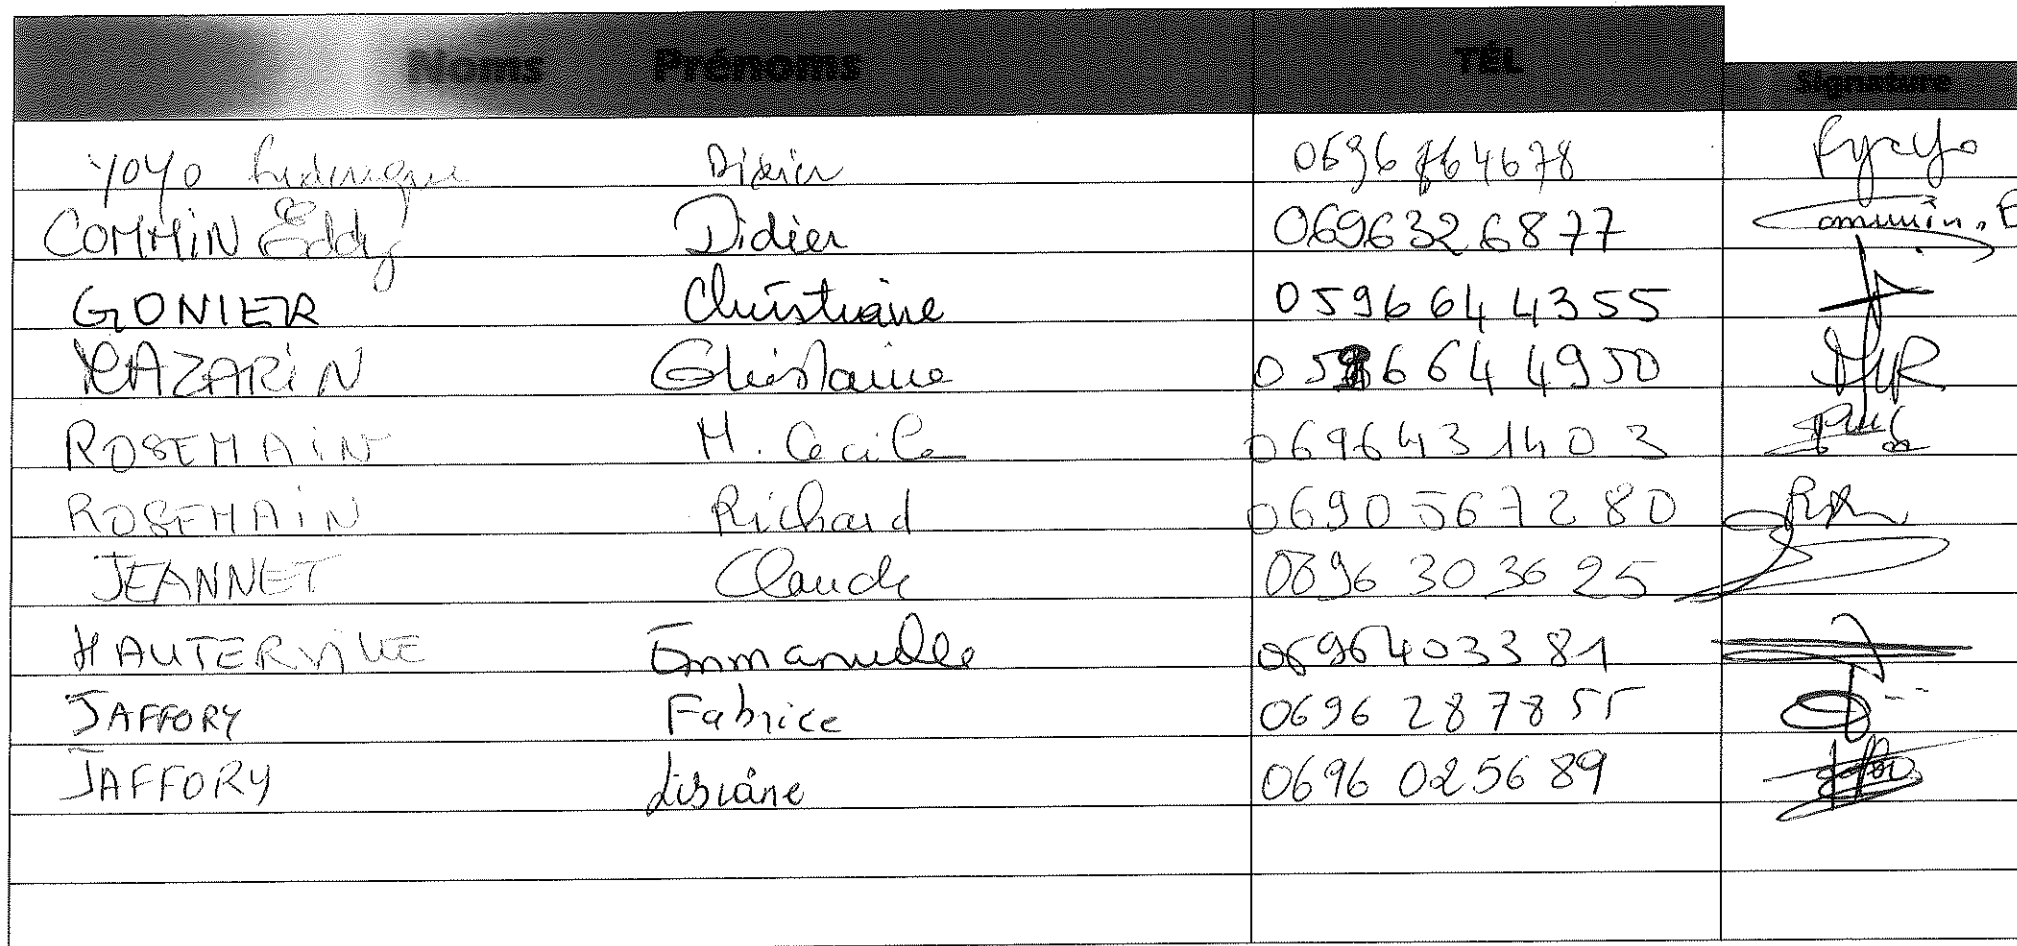 Noms Prénoms TÉL Signature
YOYO Didier 0696764678
COMMIN Eddy Didier 0696326877 Commin. E
GONIER Christiane 0596644355
MAZARIN Ghislaine 0596644950
ROSEMAIN M. Cecile 0696431403
ROSEMAIN Richard 0690567280
JEANNET Claude 0696 30 36 25
HAUTERVILLE Emmanuelle 0696403381
JAFFORY Fabrice 0696 287855
JAFFORY Lisiane 0696 025689